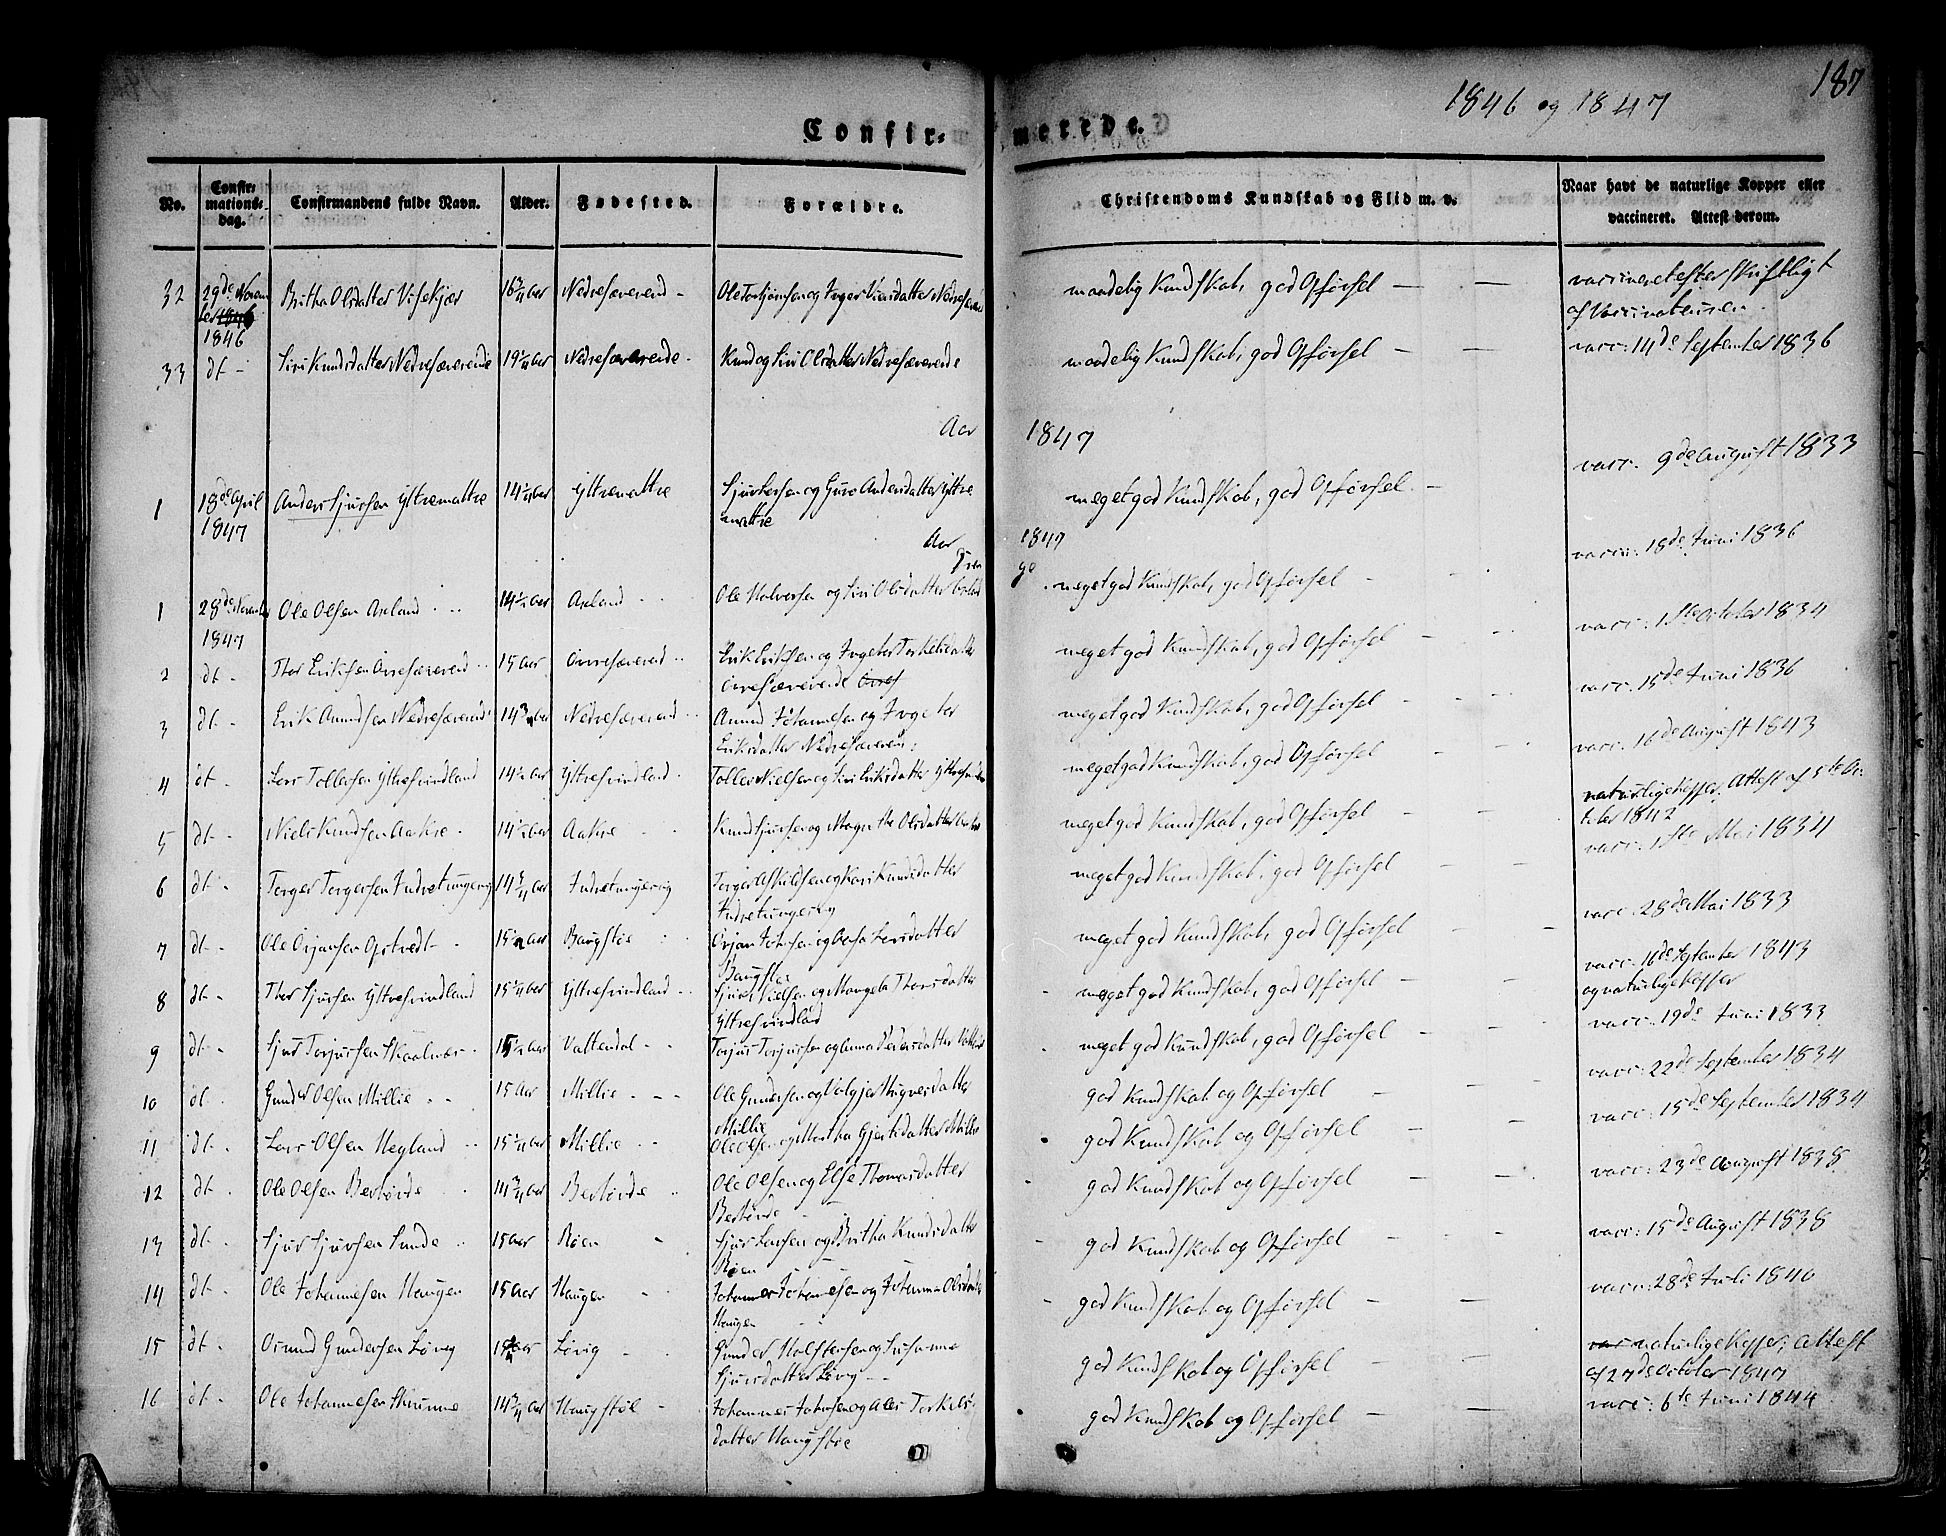 187
1846 og 1847
Confir= merede.
No. Confirmations=dag. Confirmandens fulde Navn. Alder. Fødested. Forældre. Christendoms Kundskab og Flid m. v. Naar havt de naturlige Kopper eller vaccineret. Attest derom.
32 29de November 1846 Britha Olsdatter 16 3/4 Aar Nedresævereid - Ole og Inger maadelig Kundskab, god Opførsel — — vaccineret efter skriftligt
af Vaccinateuren.
33 dt - Siri Knudsdatter Nedresævereide 19 Aar Nedresævereide - Knud og Siri Olsdatter Nedresævereide maadelig Kundskab, god Opførsel — — vacc: 14de September 1836
Aar 1847
1 18de April 1847 Anders Sjursen Yttrematre 14 Aar Yttrematre Sjur Larsen og Guro Andersdatter Yttre
matre meget god Kundskab, god Opførsel. — vacc. 9de August 1833
Aar 1847
1 28de November 1847 Ole Olsen Axland 14 1/2 Aar Axland Ole Halversen og Siri Olsdatter Axland meget god Kundskab, god Opførsel - vacc: 18de Juni 1836
2 dt - Thor Eriksen Øvresævereid 15 Aar Øvresævereid Erik Eriksen og Ingeter Torkelsdatter
Øvresævereide meget god Kundskab, god Opførsel — vacc: 1ste October 1834
3 dt - Erik Amundsen Nedresævereid 14 3/4 Aar Nedresævereid Amund Johannesen og Ingeter
Eriksdatter Nedresævereid: meget god Kundskab, god Opførsel — vacc: 15de Juni 1836
4 dt - Lars Tollefsen Yttresvindland 14 1/2 Aar Yttresvindland - Tollef Nielsen og Siri Eriksdatter Yttresvindland meget god Kundskab, god Opførsel — vacc: 16de August 1843
5 dt - Niels Knudsen Aakre - 14 1/2 Aar Aakre - Knud Sjursen og Magrethe Olsdatter Aakre meget god Kundskab, god Opførsel — naturlige Kopper, Attest af 5te October 1842
6 dt - Torger Torgersen Indretungesvig 14 Aar Indretungesvig Torger Askildsen og Kari Knudsdatter
Indretungesvig meget god Kundskab, god Opførsel — vacc: 1ste Mai 1834
7 dt - Ole Ørjansen Opstvedt - 15 Aar Baugstøe Ørjan Johnsen og Aasa Larsdatter
Baugstøe meget god Kundskab, god Opførsel — vacc: 28de Mai 1833
8 dt - Thor Sjursen Yttresvindland 15 1/4 Aar Yttresvindland Sjur Nielsen og Mangela Thorsdatter
Yttresvindland meget god Kundskab, god Opførsel — vacc: 16de September 1843
og naturlige Kopper
9 dt - Sjur Torjursen Skaalnes - 15 1/2 Aar Vattendal - - Torjur Torjursen og Anna Pedersdatter meget god Kundskab, god Opførsel — vacc: 19de Juni 1833
10 dt - Gunder Olsen Millie - - 15 Aar Millie - - - Ole Gundersen og
Millie god Kundskab og Opførsel — vacc: 22de September 1834
11 dt - Lars Olsen Hegland 15 1/4 Aar Millie - - Ole Olsen og Martha Gjertsdatter Millie god Kundskab og Opførsel — vacc: 15de September 1834
12 dt - Ole Olsen Berhovde 14 3/4 Aar Berhovde Ole Olsen og Else Thomasdatter
Berhovde god Kundskab og Opførsel — vacc: 23de August 1838
13 dt - Sjur Sjursen Sunde 15 Aar Røen - Sjur Larsen og Britha Knudsdatter
Røen god Kundskab og Opførsel - vacc: 15de August 1838
14 dt - Ole Johannesen Haugen 15 Aar Haugen - Johannes Johannesen og Johanna Olsdatter
Haugen god Kundskab og Opførsel — vacc: 28de Juli 1840
15 dt - Osmund Gundersen Løvig Aar Løvig - Gunder Halstensen og Susanna
Sjursdatter Løvig - - god Kundskab og Opførsel — naturlige Kopper; Attest
af 27de October 1847
16 dt - Ole Johannesen Skrumme 14 3/4 Aar Haugstøe - Johannes Johnsen og Torkels-
datter Haugstøe god Kundskab og Opførsel — vacc: 6te Juni 1844